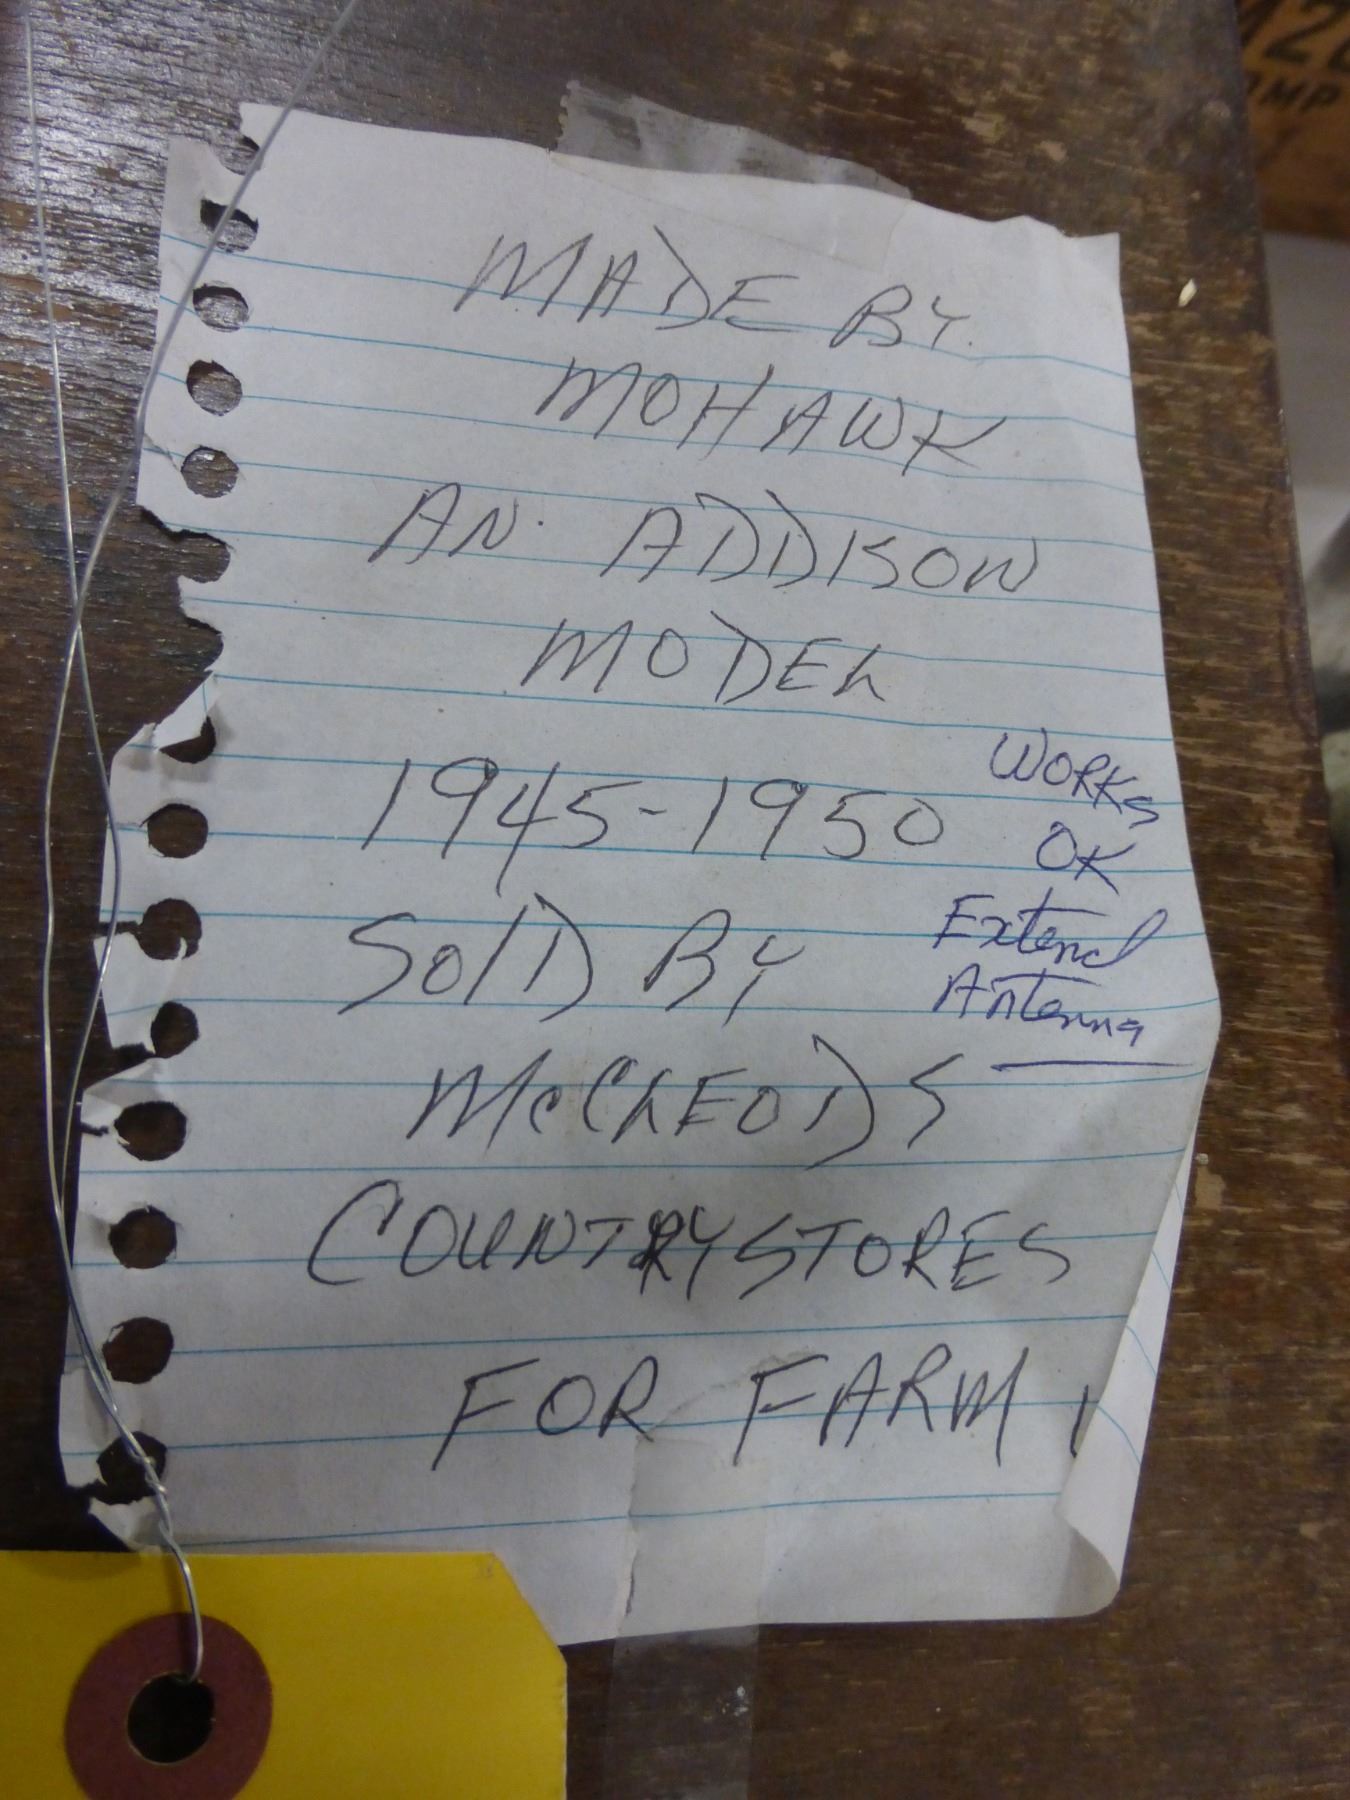 MADE BY.
MOHAWK
AN. ADDISON
MODEL
1945-1950
SolD BY
McCLEODS
COUNTRYSTORES
FOR FARM
WORKS
OK
Extend
Antenna